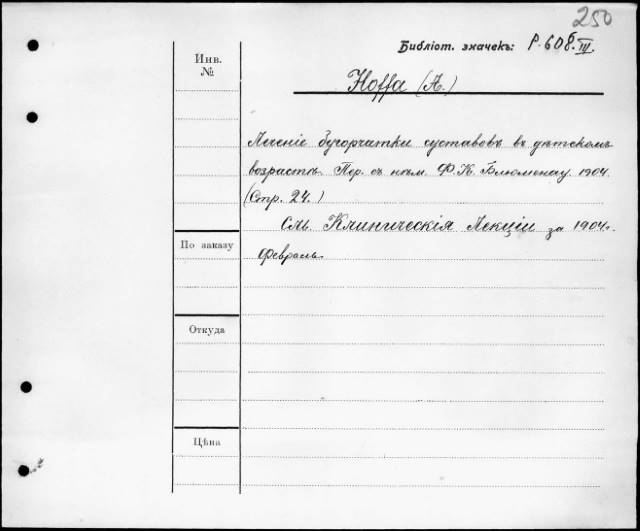 250
Библіот. значекъ: Р. 608 б. III.
Инв.
№
Hoffa (A.)
Леченіе бугорчатки суставовъ въ дѣтскомъ
возрастѣ. Пер. съ нѣм. Ф. К. Блюменау. 1904.
(Стр. 24.)
См. Клиническія Лекціи за 1904 г.
Февраль.
По заказу
Откуда
Цѣна